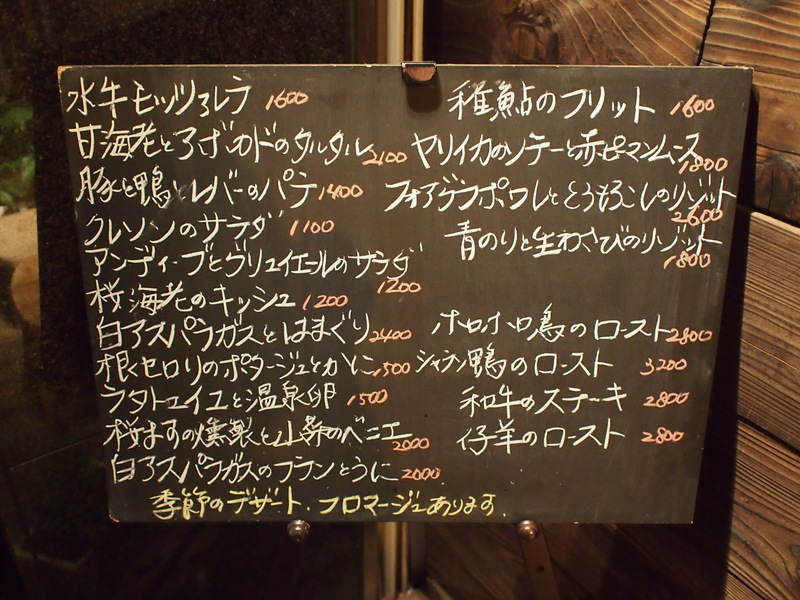 水牛モッツァレラ 1600
甘海老とアボカドのタルタル 2100
豚と鴨とレバーのパテ 1400
クレソンのサラダ 1100
アンディーブとグリュイエールのサラダ 1200
桜海老のキッシュ 1200
白アスパラガスとはまぐり 2400
根セロリのポタージュとかに 1500
ラタトゥイユと温泉卵 1500
桜ますの燻製と山菜のベニエ 2000
白アスパラガスのフランとうに 2000
稚鮎のフリット 1600
ヤリイカのソテーと赤ピーマンムース 1800
フォアグラポワレととうもろこしのリゾット 2600
青のりと生わさびのリゾット 1800
ホロホロ鳥のロースト 2800
シャラン鴨のロースト 3200
和牛のステーキ 2800
仔羊のロースト 2800
季節のデザート、フロマージュあります。